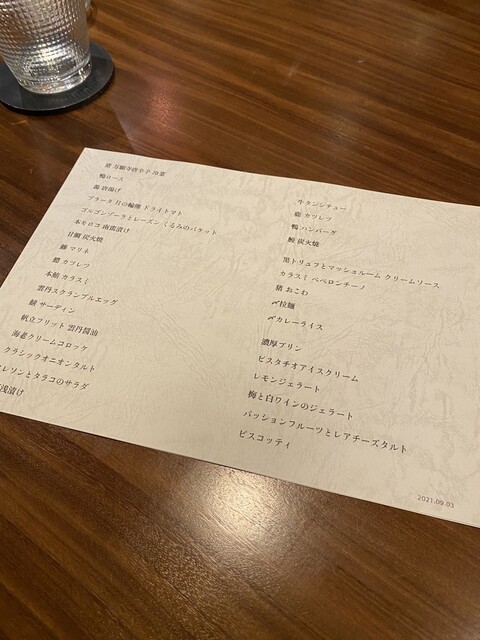 万願寺唐辛子 冷菜
鴨ロース
鶏 唐揚げ
ブラータ 月の輪熊 ドライトマト
ゴルゴンゾーラとレーズン くるみのバケット
本モロコ 南蛮漬け
甘鯛 炭火焼
マリネ
カツレツ
本鮪 カラスミ
雲丹スクランブルエッグ
サーディン
帆立フリット 雲丹醤油
海老クリームコロッケ
クラシックオニオンタルト
とタラコのサラダ
浅漬け
牛タンシチュー
鹿 カツレツ
鴨 ハンバーグ
鰻 炭火焼
黒トリュフとマッシュルーム クリームソース
カラスミ ペペロンチーノ
猪 おこわ
〆拉麺
〆カレーライス
濃厚プリン
ピスタチオアイスクリーム
レモンジェラート
梅と白ワインのジェラート
パッションフルーツとレアチーズタルト
ビスコッティ
2021.09.03